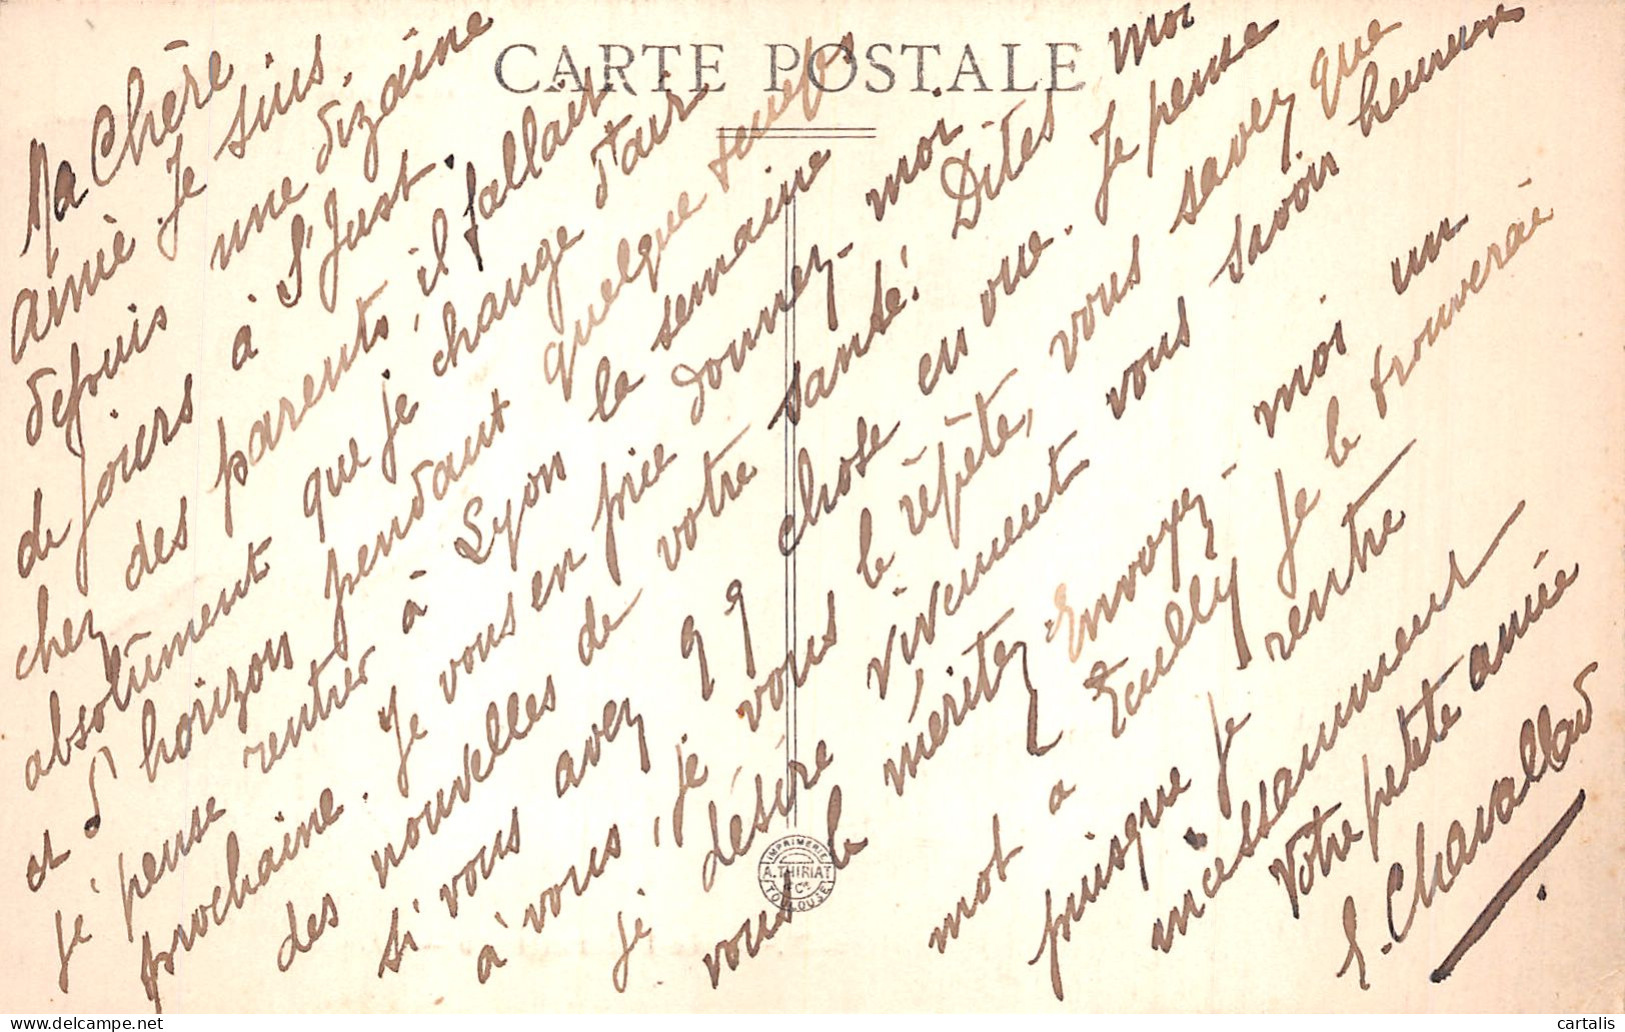 CARTE POSTALE
Ma Chère
Amie. Je suis
depuis une dizaine
de jours à St Just.
chez des parents, il fallait
absolument que je change d'air
et d'horizon pendant quelque temps
je pense rentrer à Lyon la semaine
prochaine. Je vous en prie donnez-moi
des nouvelles de votre santé! Dites moi
si vous avez qq chose en vue. Je pense
à vous, je vous le répète, vous savez que
je désire vivement vous savoir heureuse
vous le méritez. Envoyez-moi un
mot à Ecully je le trouverai
puisque je rentre
incessamment
Votre petite amie
E. Chavallard
IMPRIMERIE
A. THIRIAT
& Cie
TOULOUSE
cartalis